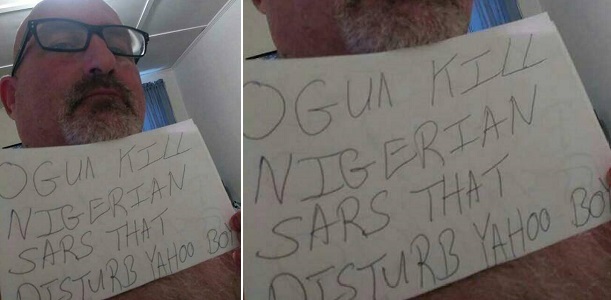 OGUN KILL
NIGERIAN
SARS THAT
DISTURB YAHOO BOY
OGUN KILL
NIGERIAN
SARS THAT
DISTURB YAHOO BO